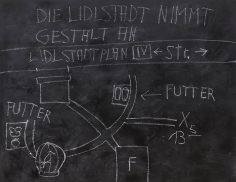 DIE LIDLSTADT NIMMT
GESTALT AN
LIDLSTADTPLAN IV ← Str. →
← FUTTER
FUTTER
X
13
F